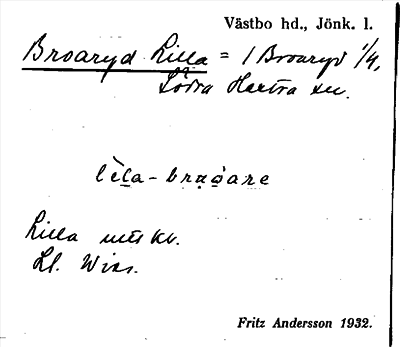 Västbo hd., Jönk. l.
Broaryd Lilla = 1 Broaryd 1/4,
Södra Hestra sn.
Lilla utt kv.
Ll. Wiss.
Fritz Andersson 1932.